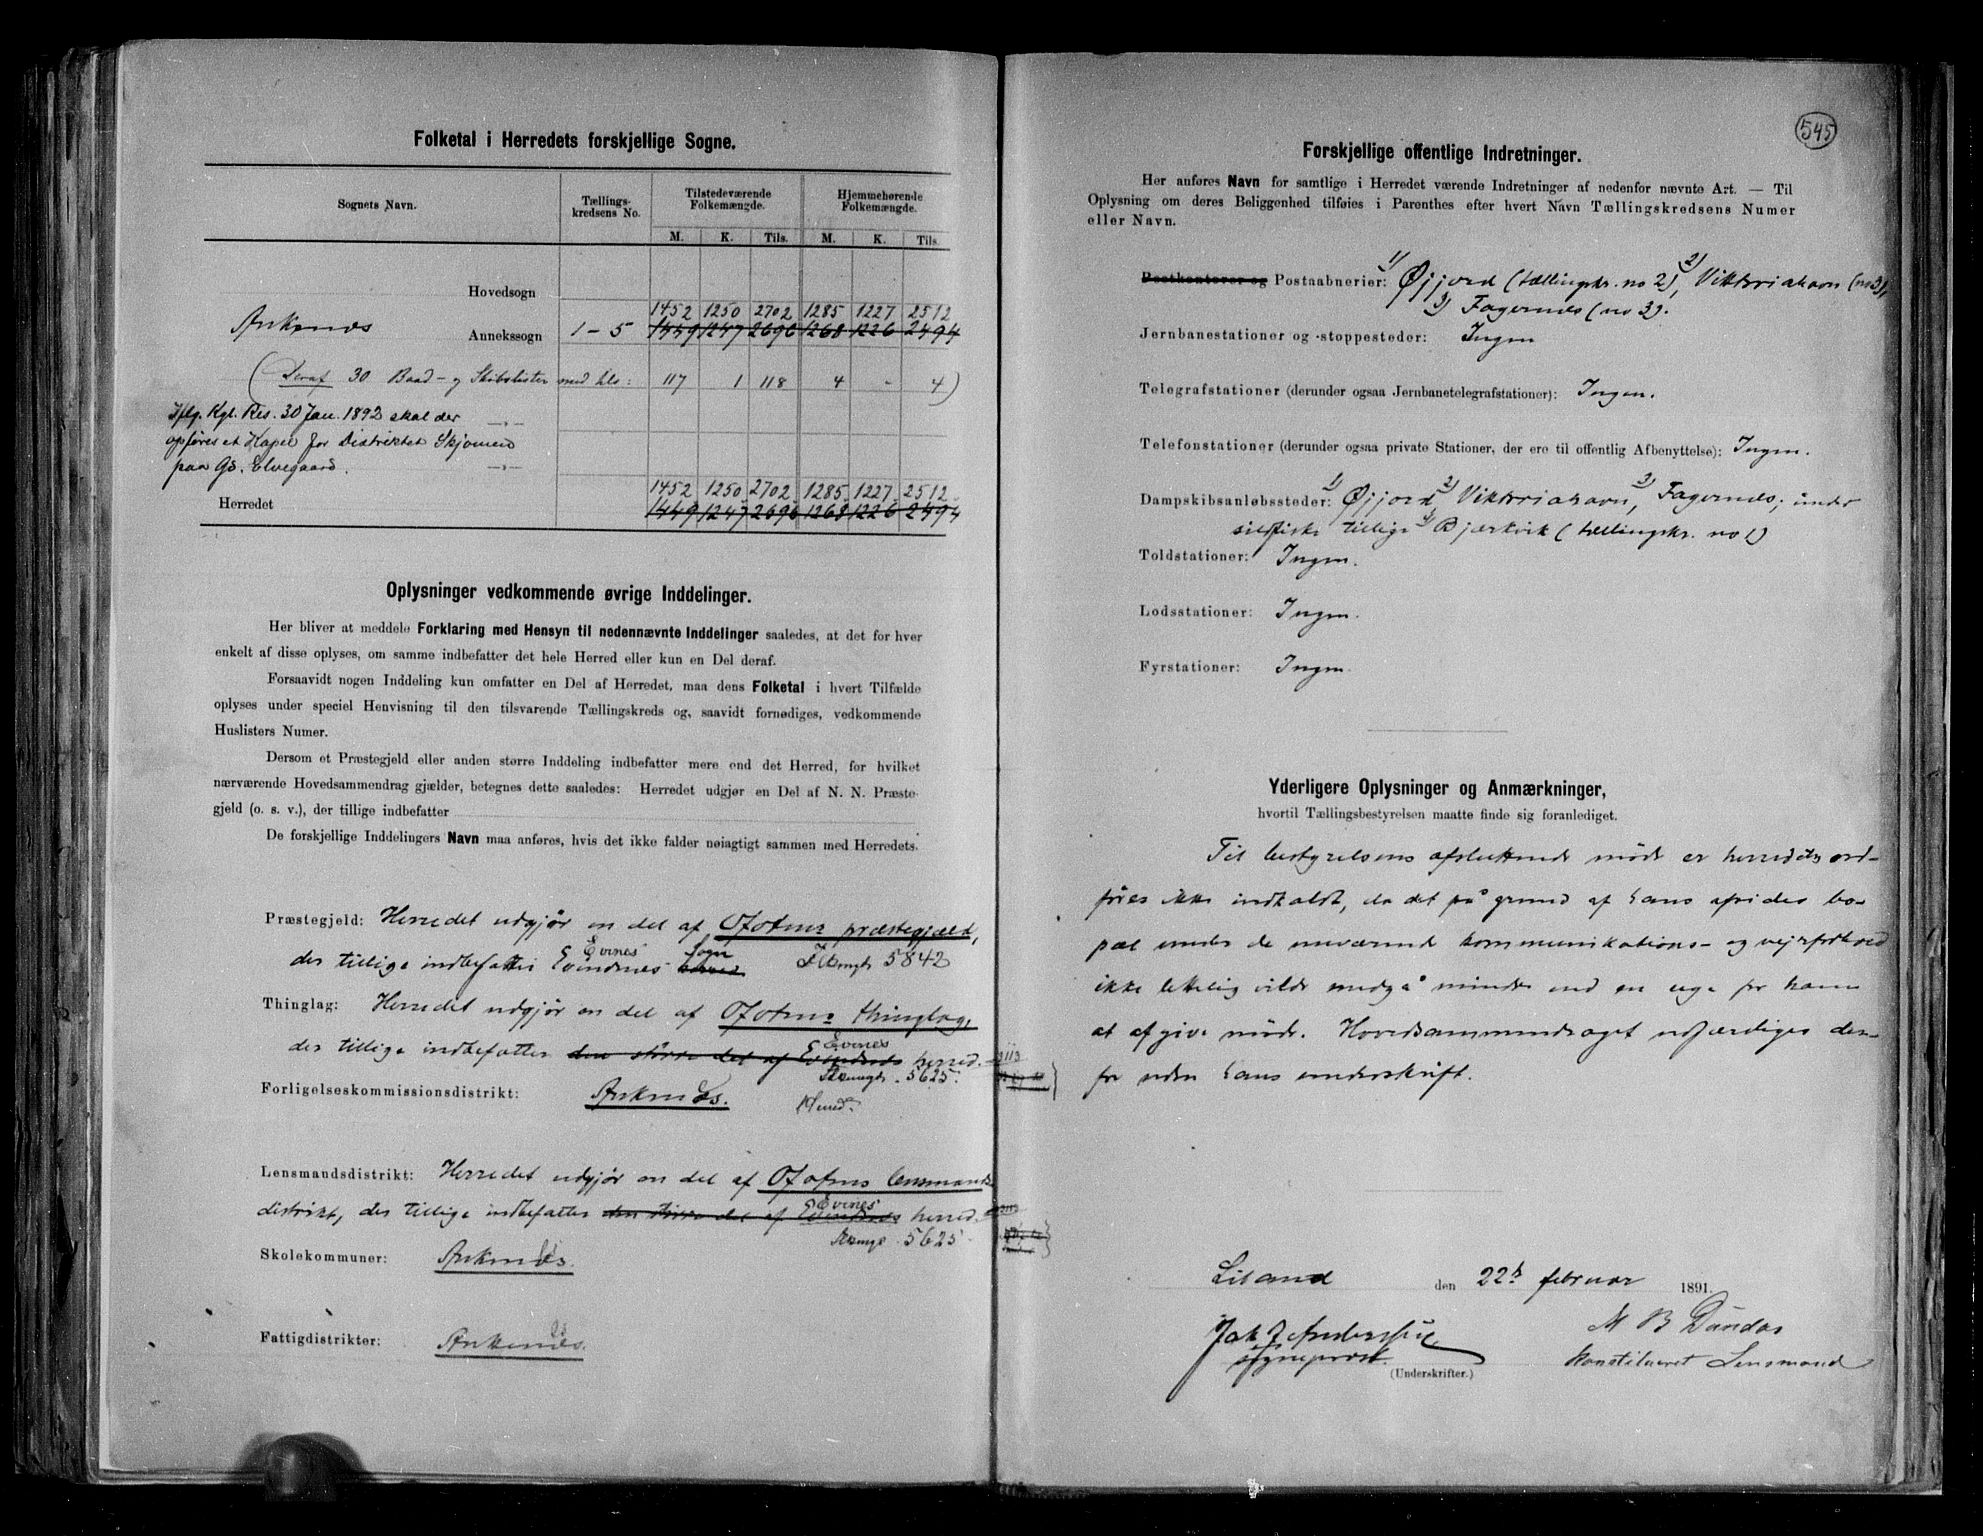 Folketal i Herredets forskjellige Sogne.
Sognets Navn. Tællings-kredsens No. Tilstedeværende Folkemængde. Hjemmehørende Folkemængde.
M. K. Tils. M. K. Tils.
Hovedsogn
1452 1250 2702 1285 1227 2512
Ankenes Annekssogn 1-5 1449 1247 2696 1268 1226 2494
(Deraf 30 Baad- og Skibslister med tls: 117 1 118 4 - 4)
Iflg. Kgl. Res. 30 Jan. 1892 skal der
opføres et Kapel for Distriktet Skjomen
paa Gd. Elvegaard.
1452 1250 2702 1285 1227 2512
Herredet 1449 1247 2696 1268 1226 2494
Oplysninger vedkommende øvrige Inddelinger.
Her bliver at meddele Forklaring med Hensyn til nedennævnte Inddelinger saaledes, at det for hver
enkelt af disse oplyses, om samme indbefatter det hele Herred eller kun en Del deraf.
Forsaavidt nogen Inddeling kun omfatter en Del af Herredet, maa dens Folketal i hvert Tilfælde
oplyses under speciel Henvisning til den tilsvarende Tællingskreds og, saavidt fornødiges, vedkommende
Huslisters Numer.
Dersom et Præstegjeld eller anden større Inddeling indbefatter mere end det Herred, for hvilket
nærværende Hovedsammendrag gjælder, betegnes dette saaledes: Herredet udgjør en Del af N. N. Præste-
gjeld (o. s. v.), der tillige indbefatter
De forskjellige Inddelingers Navn maa anføres, hvis det ikke falder nøiagtigt sammen med Herredets.
Præstegjeld: Herredet udgjør en del af Ofotens præstegjæld,
Evenes Sogn
der tillige indbefatter Evindnes herred Flkmgd 5842
Thinglag: Herredet udgjør en del af Ofotens thinglag,
Evenes
der tillige indbefatter den større del af Evindnes herred. 3113
Flkmngde. 5625.
Forligelseskommissionsdistrikt: Ankenes.
Lensmandsdistrikt: Herredet udgjør en del af Ofotens lensmands
Evenes
distrikt, der tillige indbefatter den større del af Evindnes herred.
Flkmngd. 5625.
Skolekommuner: Ankenes.
Fattigdistrikter: Ankenes.
545
Forskjellige offentlige Indretninger.
Her anføres Navn for samtlige i Herredet værende Indretninger af nedenfor nævnte Art. — Til
Oplysning om deres Beliggenhed tilføies i Parenthes efter hvert Navn Tællingskredsens Numer
eller Navn.
Postkontorer og Postaabnerier: 1) Øjjord (tællingskr. no 2), 2) Viktoriahavn (no 3),
3) Fagernes (no 3).
Jernbanestationer og -stoppesteder: Ingen
Telegrafstationer (derunder ogsaa Jernbanetelegrafstationer): Ingen.
Telefonstationer (derunder ogsaa private Stationer, der ere til offentlig Afbenyttelse): Ingen.
Dampskibsanløbssteder: 1) Øjjord, 2) Viktoriahavn, 3) Fagernes; under
sildfiske tillige 4) Bjerkvik (tællingskr. no 1)
Toldstationer: Ingen.
Lodsstationer: Ingen.
Fyrstationer: Ingen.
Yderligere Oplysninger og Anmærkninger,
hvortil Tællingsbestyrelsen maatte finde sig foranlediget.
Til bestyrelsens afsluttende møde er herredets ord-
fører ikke indkaldt, da det på grund af hans afsides bo-
pæl under de nuværende kommunikations- og vejrforhold
ikke lettelig vilde medgå mindre end en uge for ham
at afgive møde. Hovedsammendraget udfærdiges der-
for uden hans underskrift.
Liland den 22de februar 1891.
M B Dündas
sogneprest. konstitueret Lensmand
(Underskrifter.)